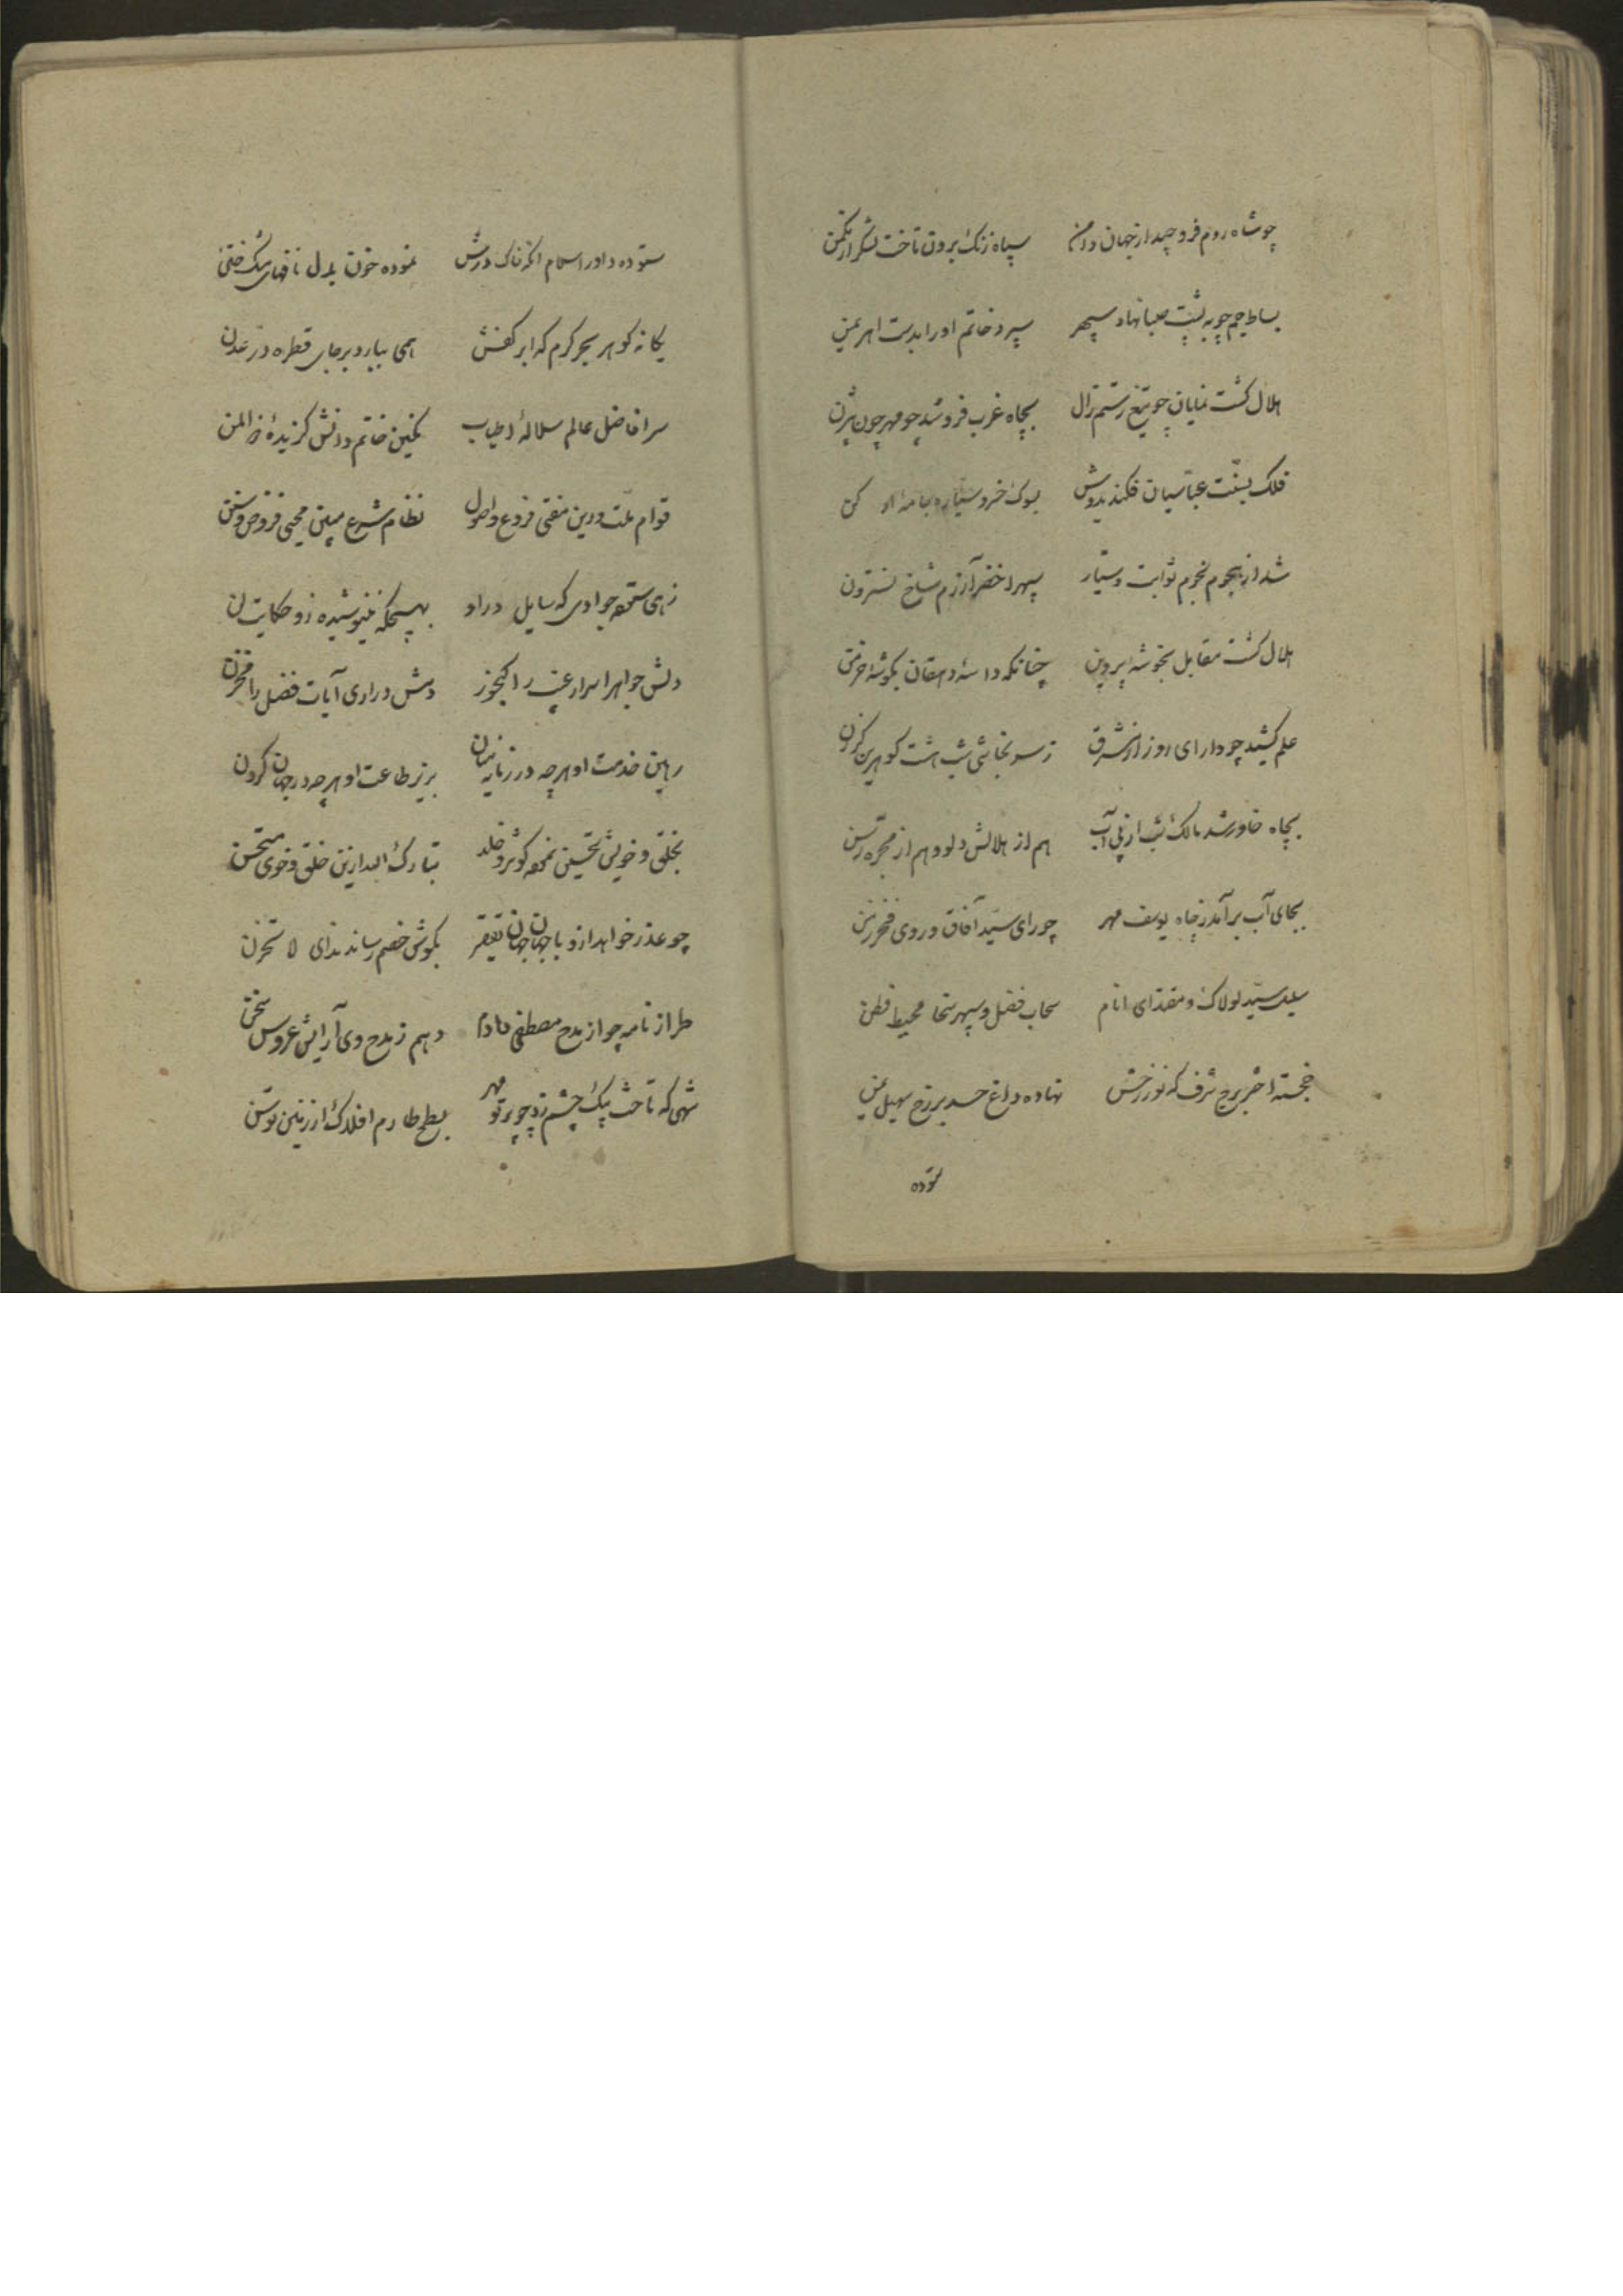 چو شاه روم فرو چید از جهان دامن سپاه زنگ برون تاخت لشکر از مکمن
بساط جم چو به پشت صبا نهاد سپهر سپرد خاتم او را بدست اهریمن
هلال گشت نمایان چو تیغ رستم زال بچاه غرب فرو شد چو مهر چون بیژن
فلک بسنّت عبّاسیان فکند بدوش بسوک خسرو سیّاره جامهٔ
شد از هجوم نجوم ثوابت و سیّار سپهر اخضر آزرم شاخ نسترون
هلال گشت مقابل بخوشهٔ پروین چنانکه داسهٔ دهقان بگوشهٔ خرمن
علم کشید چو دارای روز از مشرق ز سر نجاشی شب هشت گوهرین گرزن
بچاه خاور شد مالک شب از پی آب هم از هلالش دلو و هم از مجرّه رسن
بجای آب برآمد ز چاه یوسف مهر چو رای سیّد آفاق و روی فخر زمن
سلیل سیّد لولاک و مقتدای انام سحاب فضل و سپهر سخا محیط فطن
خجسته اختر برج شرف که نور رخش نهاده داغ حسد بر رخ سهیل یمن
ستوده
ستوده داور اسلام آنکه خاک درش نموده خون بدل نافهای مشک ختن
یگانه گوهر بحر کرم که ابر کفش همی ببارد بر جای قطره درّ عدن
سر افاضل عالم سلالهٔ اطیاب نگین خاتم دانش گزیدهٔ ذوالمن
قوام ملّت و دین مفتی فروع و اصول نظام شرع مبین محیی فروض و سنن
زهی ستوده جوادی که سایل در او بهیچگه ننیوشیده زو حکایت لن
دلش جواهر اسرار غیب را گنجور دمش دراری آیات فضل را مخزن
رهین خدمت او هر چه در زمانه بنان بزیر طاعت او هر چه در جهان گردن
بخلق و خویش تحسین نموده کوثر و خلد تبارک الله ازین خلق و خوی مستحسن
چو عذر خواهد ازو با جهان جهان تقصیر بگوش خصم رساند ندای لا تحزن
طراز نامه چو از مدح مصطفی دادم دهم ز مدح وی آرایش عروس سخن
شهی که تاخت بیک چشم زد چو پرتو مهر بسطح طارم افلاک از زمین توسن